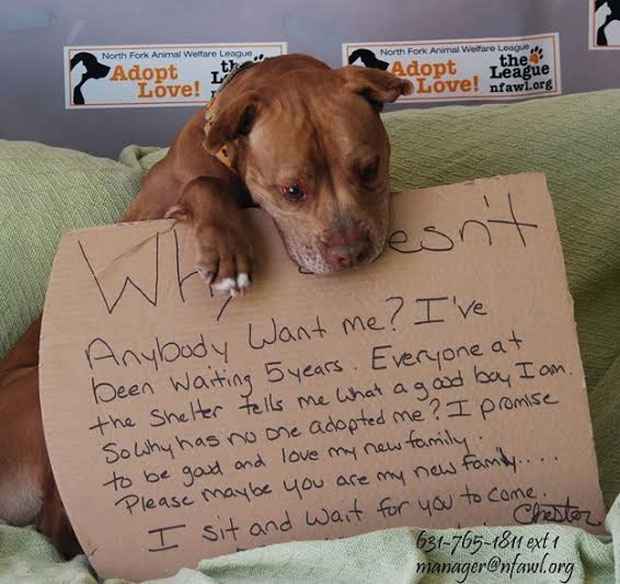 North Fork Animal Welfare League
Adopt the
Love!
North Fork Animal Welfare League
Adopt the
Love! League
nfawl.org
esn't
Anybody Want me? I've
been Waiting 5 years. Everyone at
the Shelter tells me what a good boy I am.
So why has no one adopted me? I promise
to be good and love my new family.
Please maybe you are my new family....
I sit and wait for you to come.
Chester
631-765-1811 ext 1
manager@nfawl.org